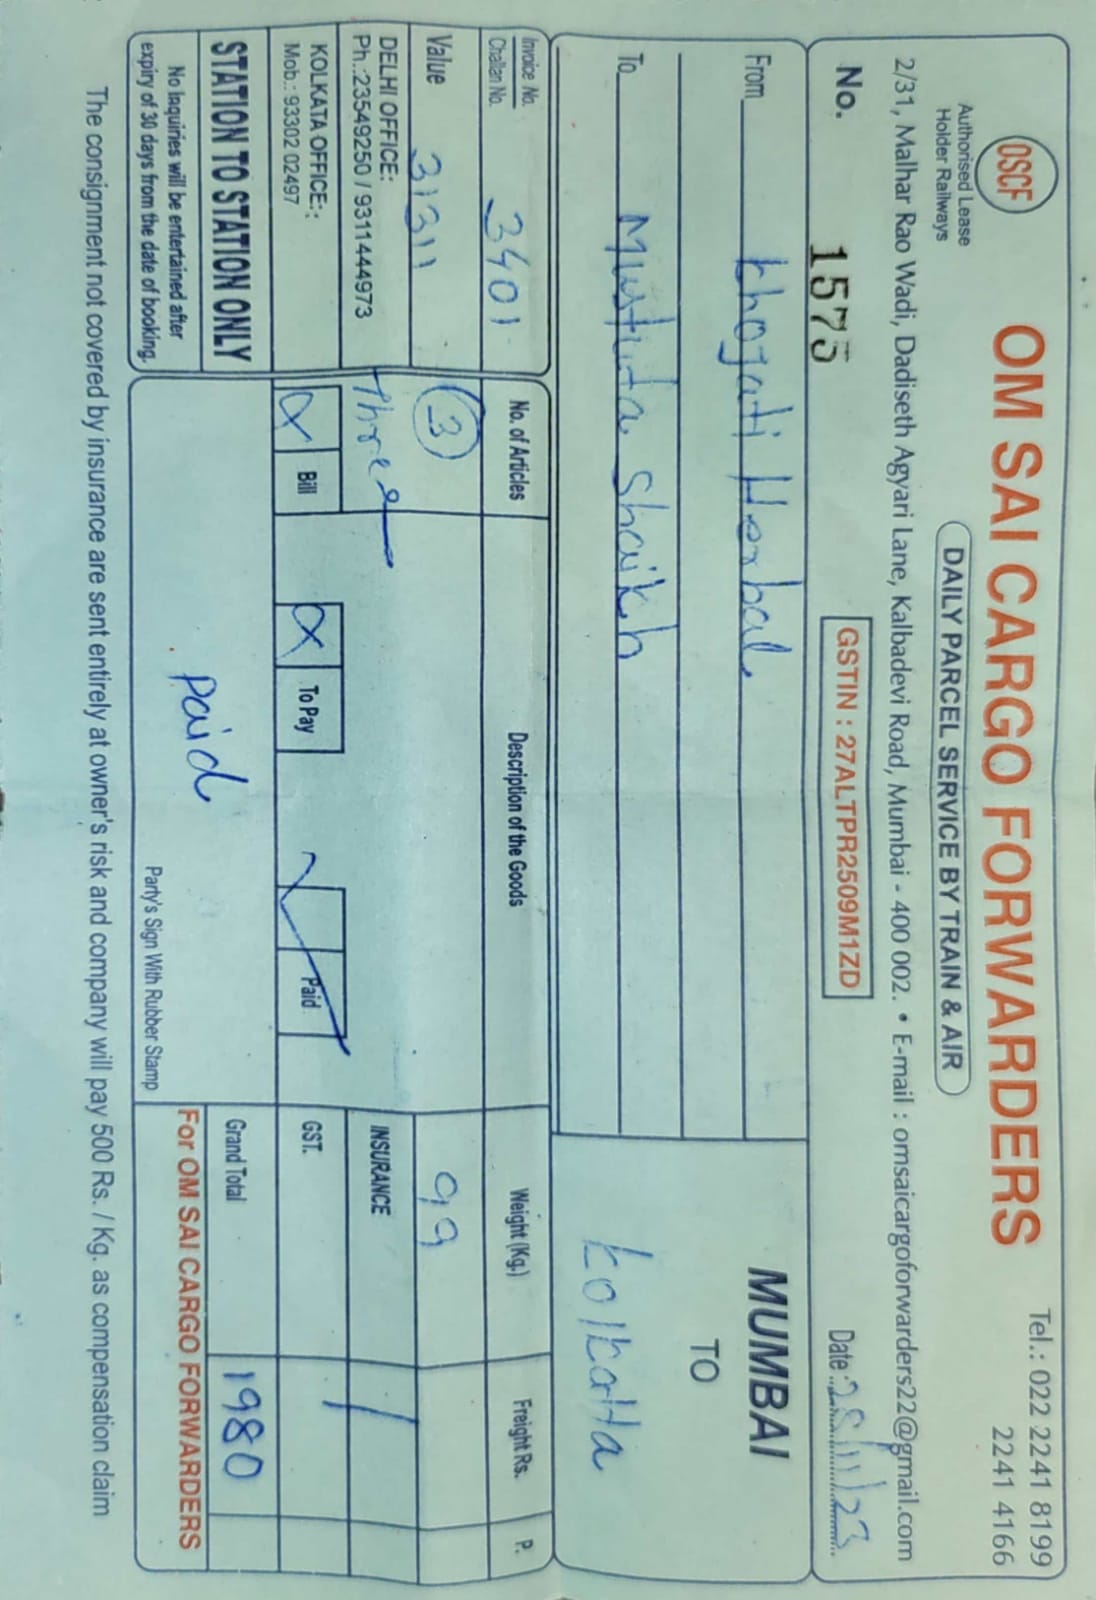 OSCF
Authorised Lease
Holder Railways
OM SAI CARGO FORWARDERS
DAILY PARCEL SERVICE BY TRAIN & AIR
Tel.: 022 2241 8199
2241 4166
2/31, Malhar Rao Wadi, Dadiseth Agyari Lane, Kalbadevi Road, Mumbai - 400 002. • E-mail : omsaicargoforwarders22@gmail.com
No. 1575
GSTIN : 27ALTPR2509M1ZD
Date : 28/11/23
From khojati Herbal
To Mustufa Shaikh
MUMBAI
TO
kolkatta
Invoice No.
Challan No. 3401
Value 31311
DELHI OFFICE:
Ph.:23549250 / 9311444973
KOLKATA OFFICE::
Mob.: 93302 02497
STATION TO STATION ONLY
No Inquiries will be entertained after
expiry of 30 days from the date of booking.
No. of Articles Description of the Goods Weight (Kg.) Freight Rs. P.
3 99
Three
INSURANCE
Bill To Pay Paid
GST.
Grand Total 1980
Paid
Party's Sign With Rubber Stamp
For OM SAI CARGO FORWARDERS
The consignment not covered by insurance are sent entirely at owner's risk and company will pay 500 Rs. / Kg. as compensation claim